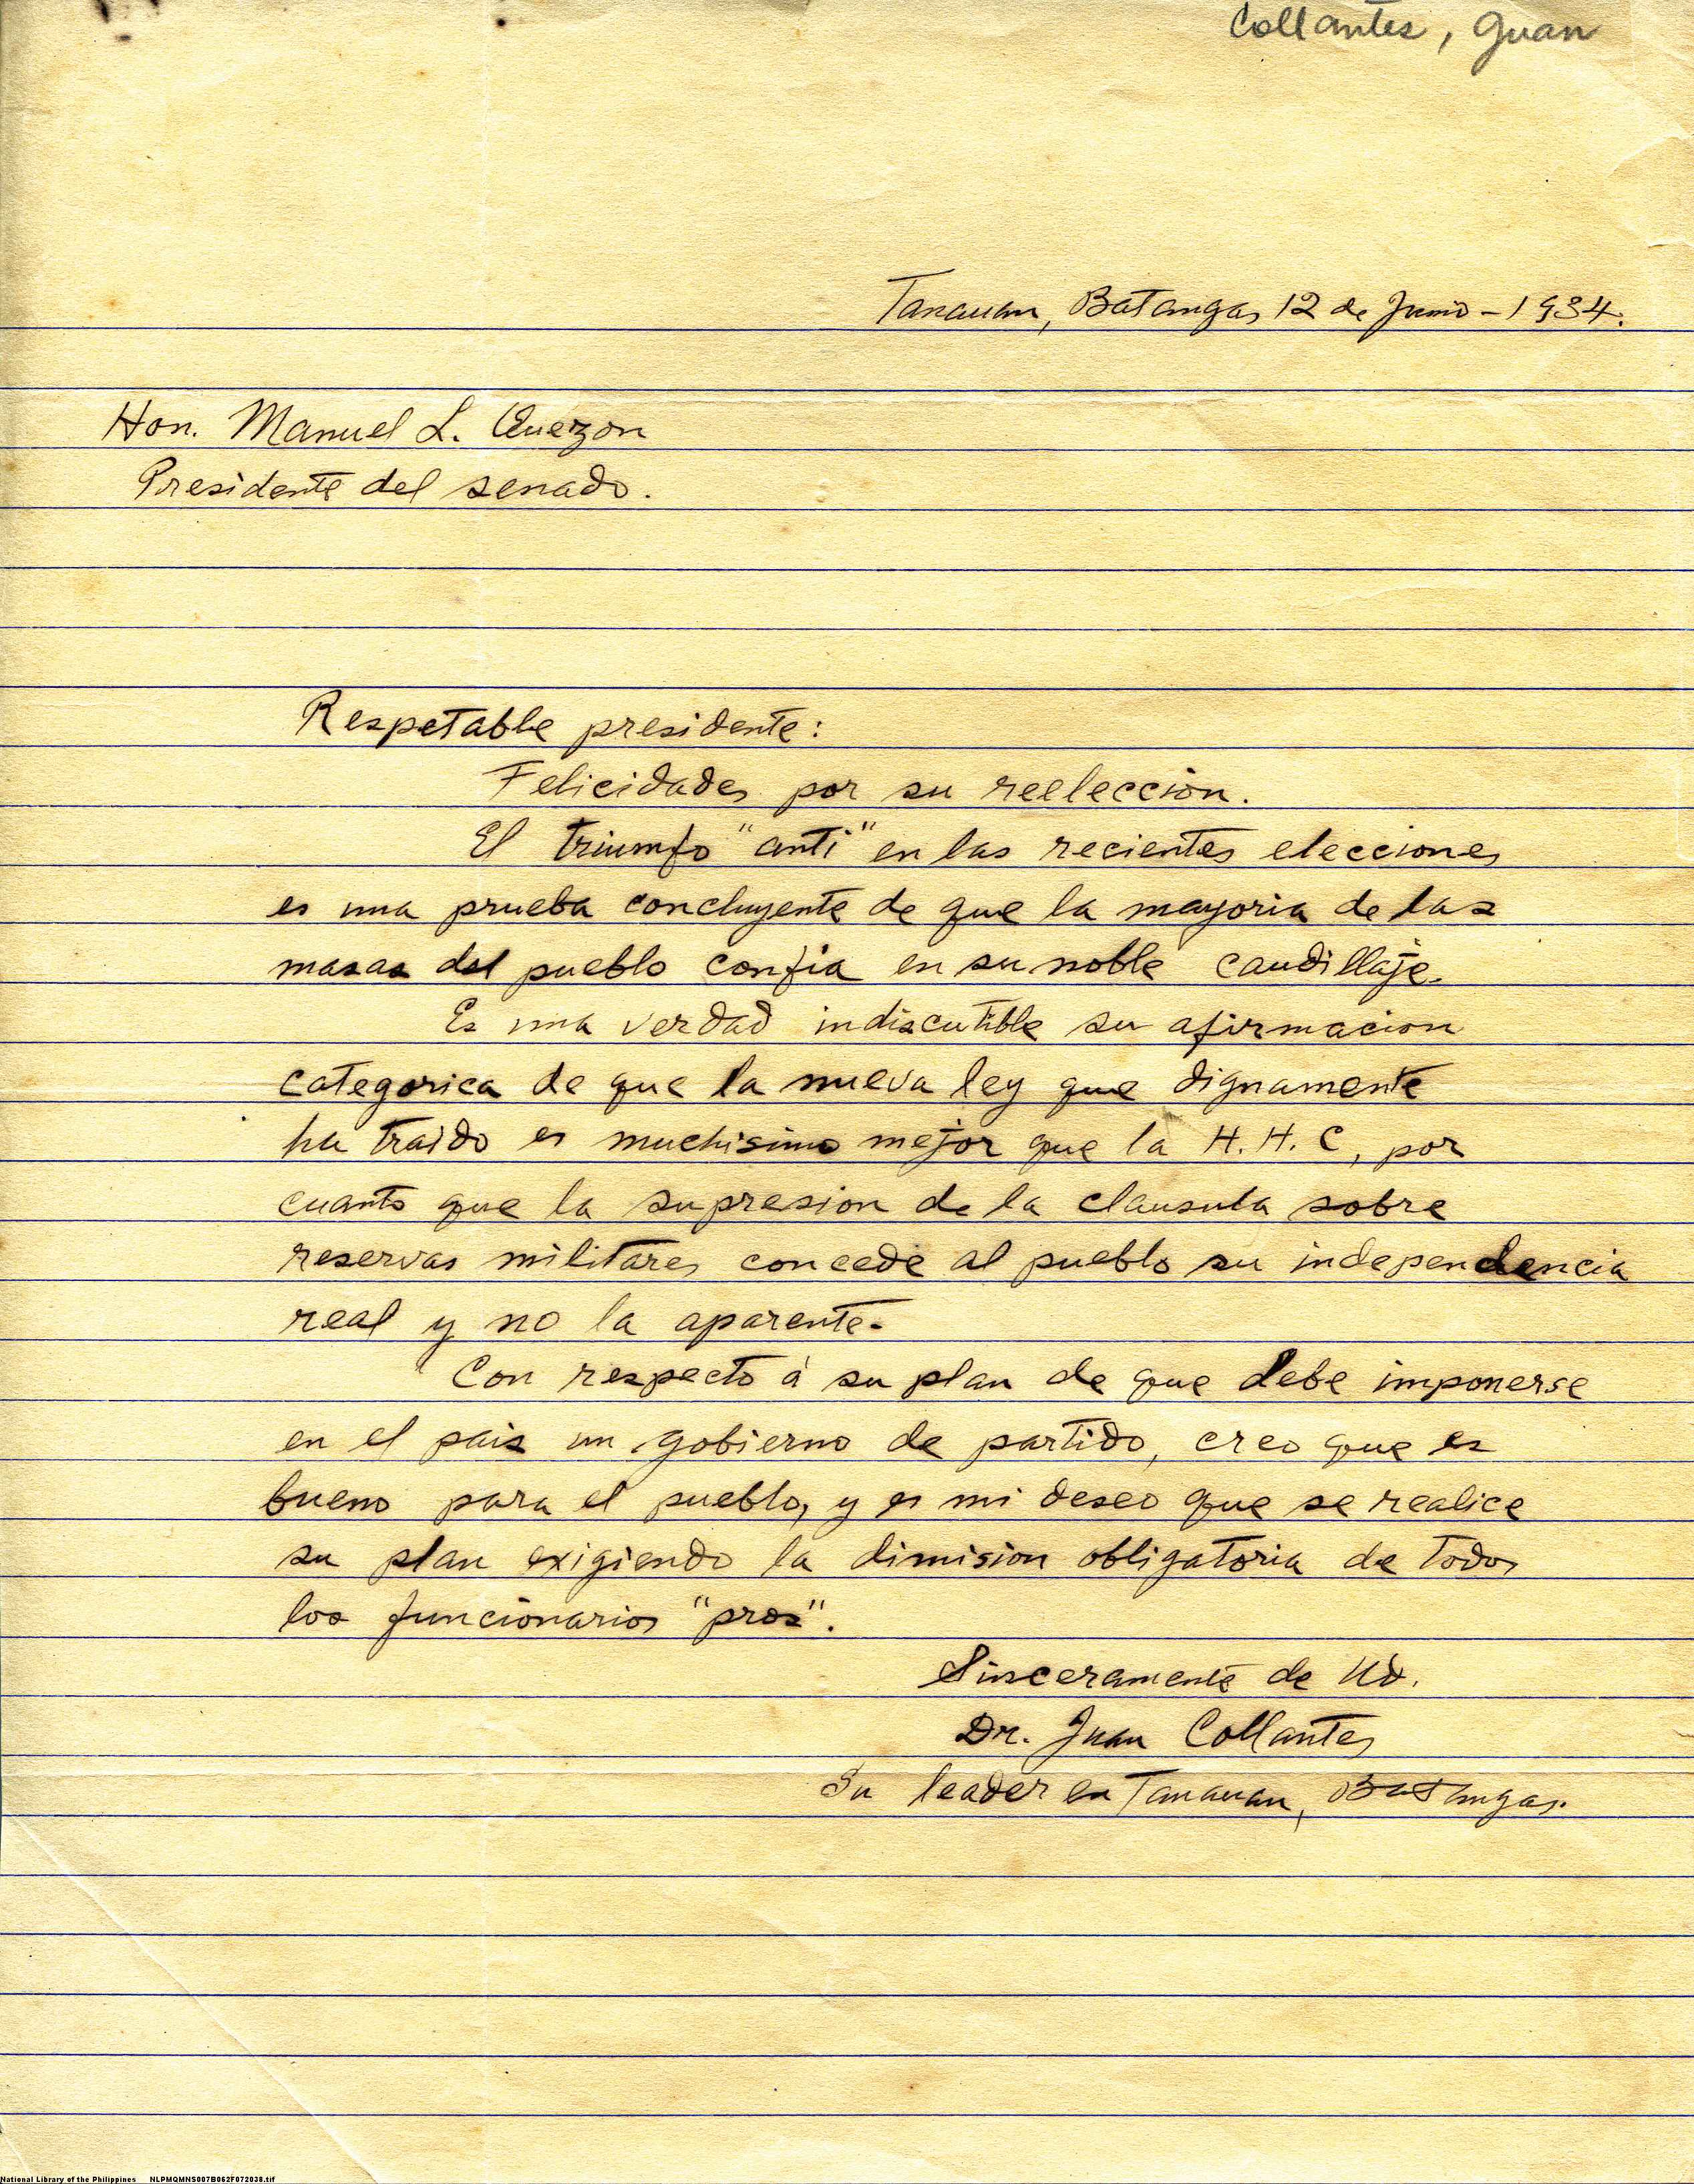 Collantes, Juan
Tanauan, Batangas 12 de Junio - 1934.
Hon. Manuel L. Quezon
Presidente del senado.
Respetable presidente:
Felicidades por su reeleccion.
El triumfo "anti" en las recientes elecciones
es una prueba concluyente de que la mayoria de las
masas del pueblo confia en su noble caudillaje.
Es una verdad indiscutible su afirmacion
categorica de que la nueva ley que dignamente
ha traido es muchisimo mejor que la H. H. C, por
cuanto que la supresion de la clausula sobre
reservas militares concede al pueblo su independencia
real y no la aparente.
Con respecto á su plan de que debe imponerse
en el pais un gobierno de partido, creo que es
bueno para el pueblo, y es mi deseo que se realice
su plan exigiendo la dimision obligatoria de todos
los funcionarios "pros".
Sinceramente de Ud.
Dr. Juan Collantes
Su leader en Tanauan, Batangas.
National Library of the Philippines NLPMQMNS007B062F072038.tif